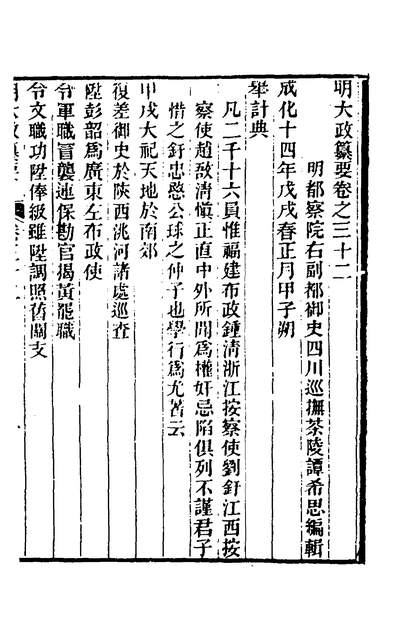 明大政纂要卷之三十二
明都察院右副都御史四川巡撫茶陵譚希思編輯
成化十四年戊戌春正月甲子朔
舉計典
凡二千十六員惟福建布政鍾清浙江按察使劉釪江西按
察使趙敔淸愼正直中外所聞爲權奸忌陷俱列不謹君子
惜之釪忠愍公球之仲子也學行爲尤著云
甲戌大祀天地於南郊
復差御史於陝西洮河諸處巡查
陞彭韶爲廣東左布政使
令軍職冒襲連保勘官揭黃罷職
令文職功陞俸級雖陞調照舊關支